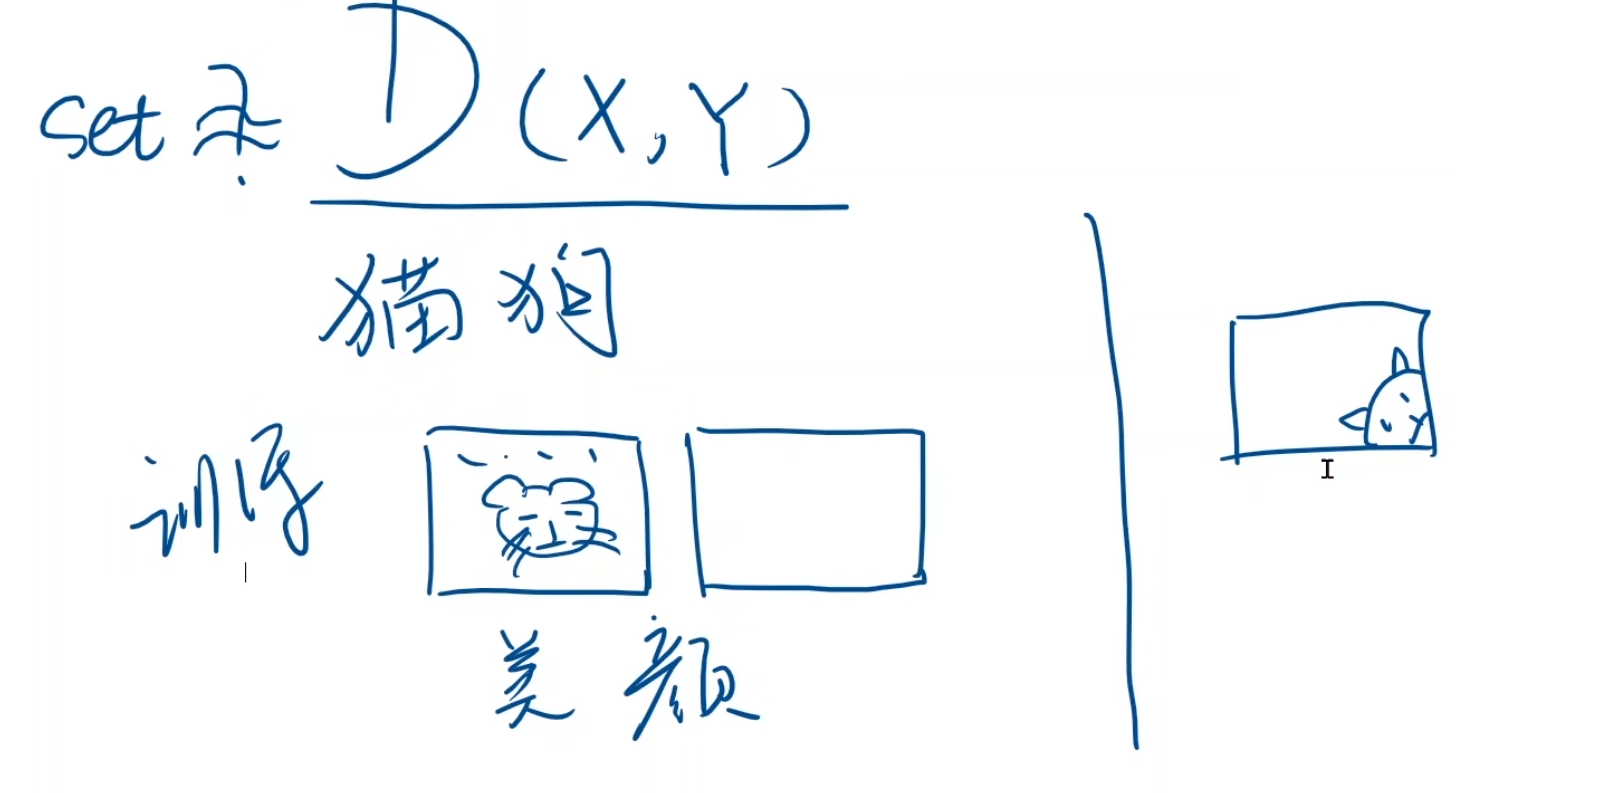 set D(X,Y)
猫狗
训练
美颜